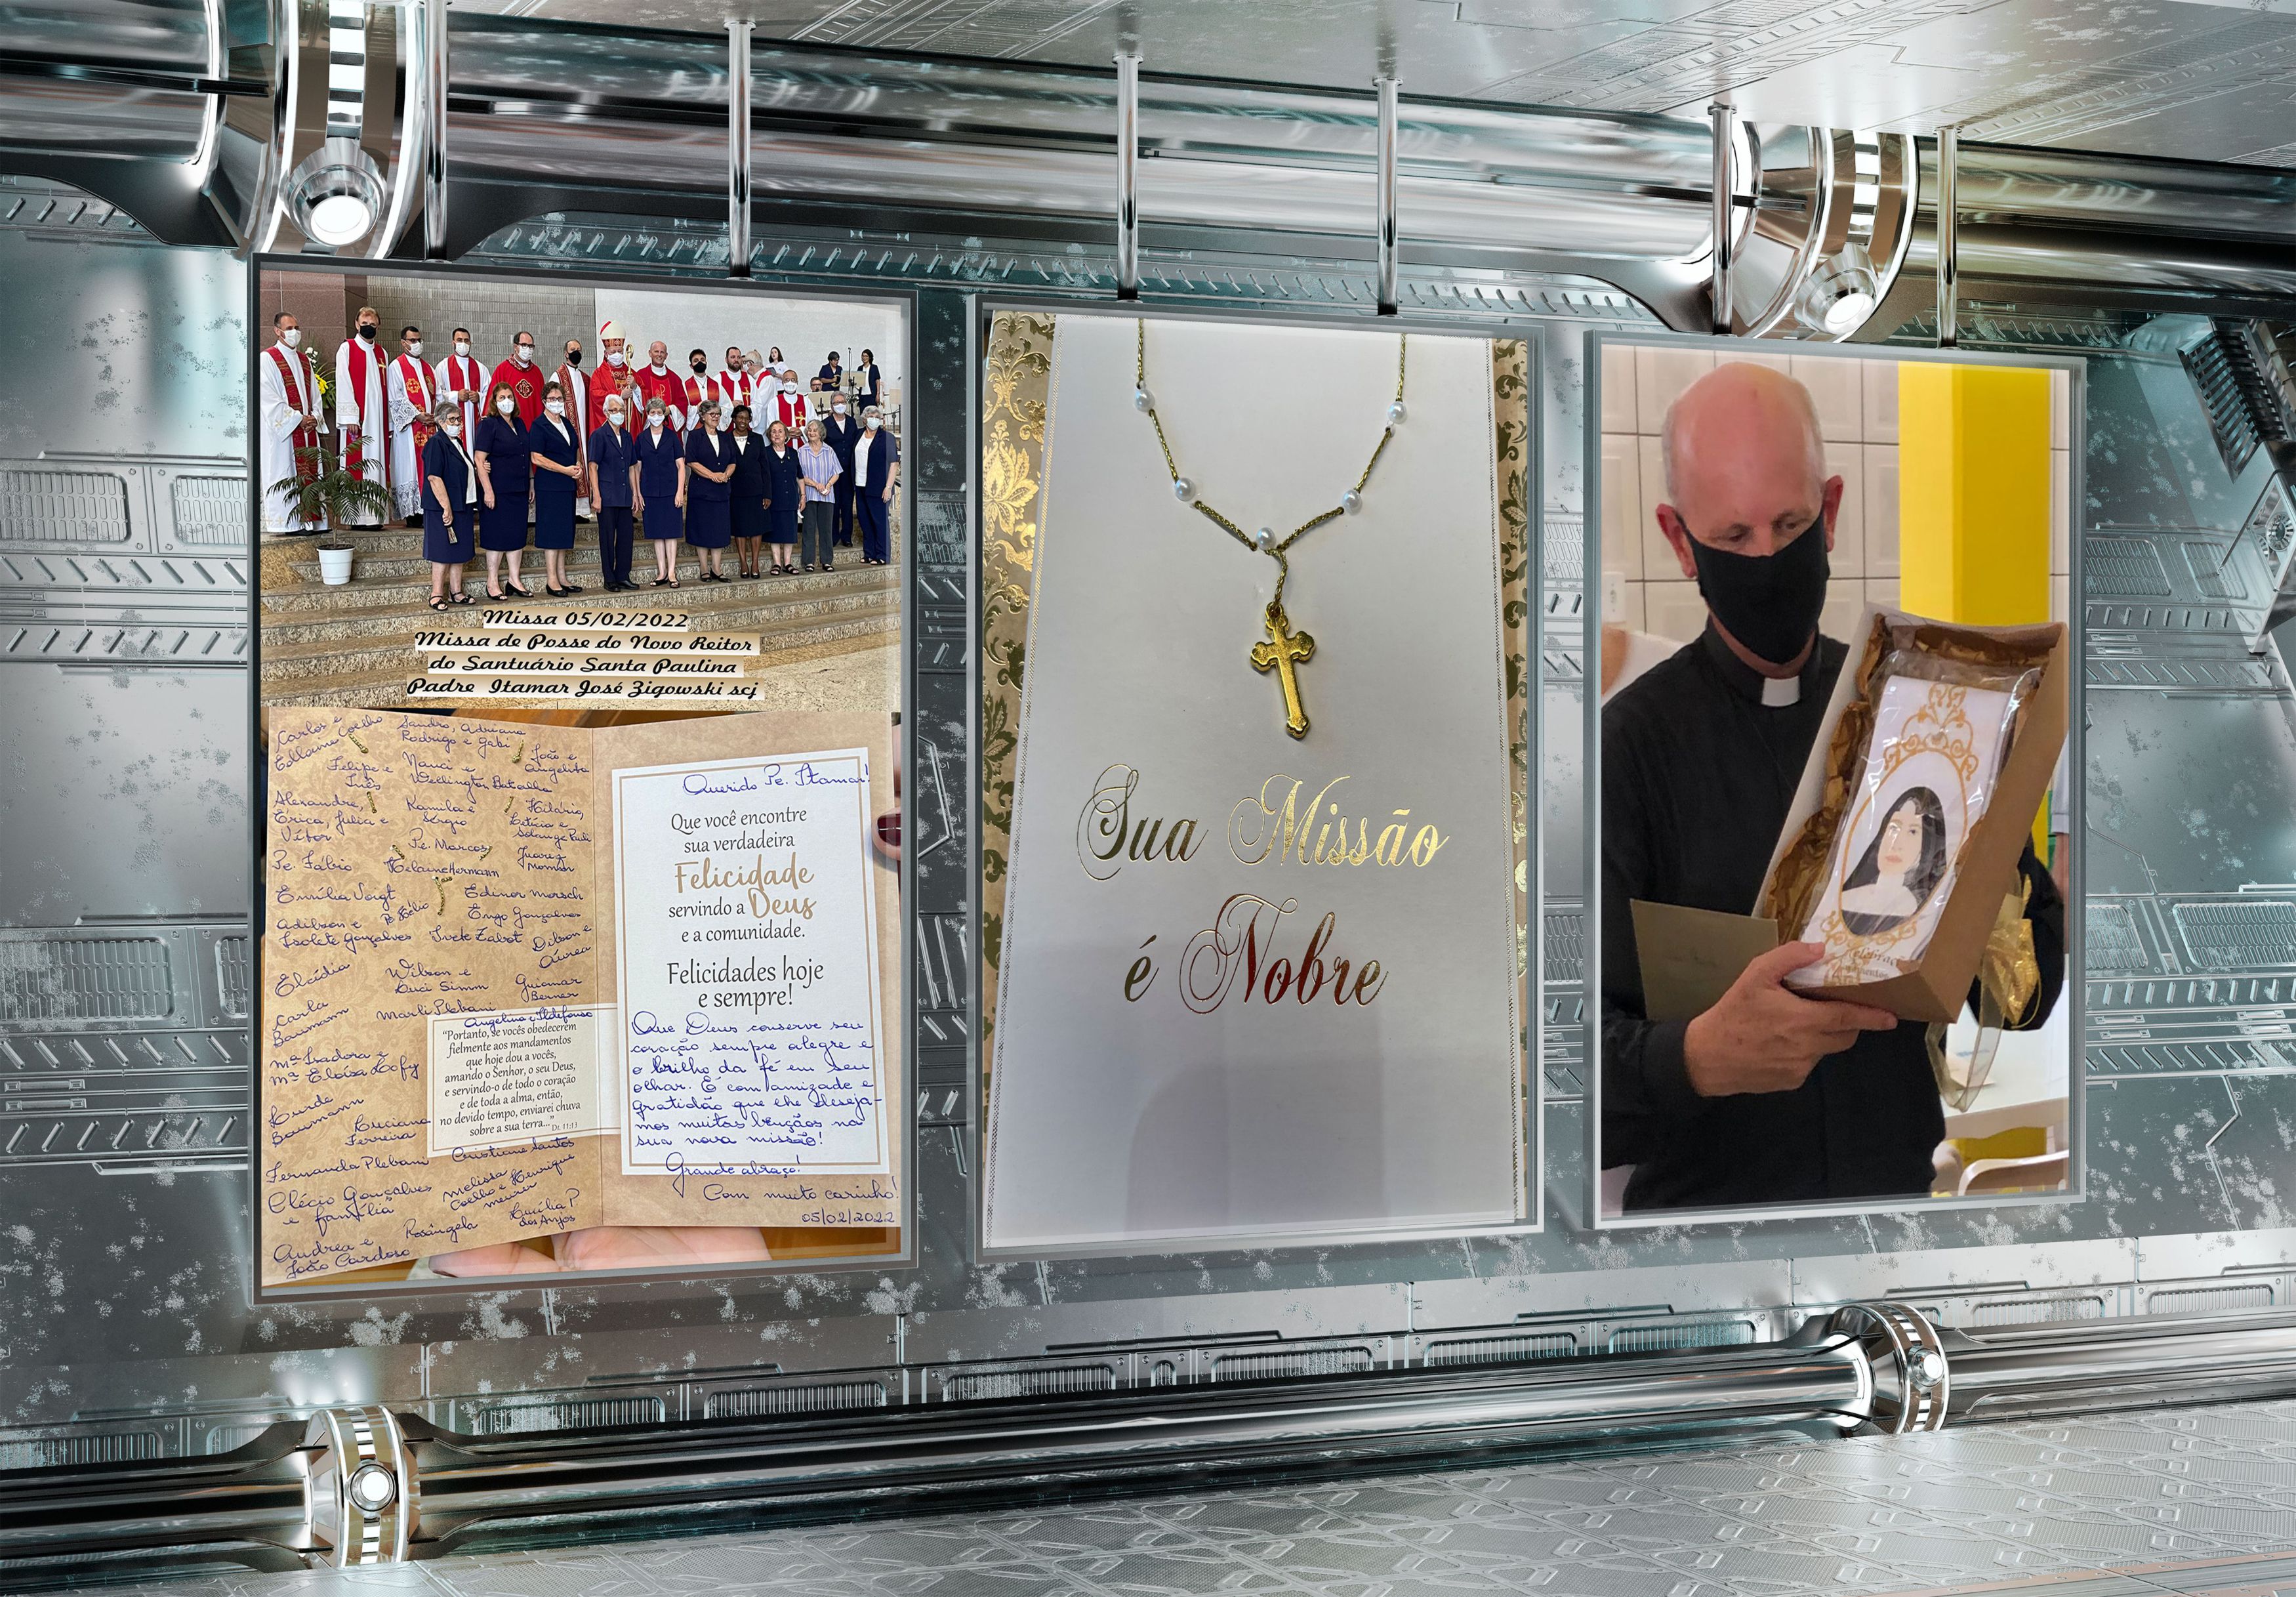 Missa 05/02/2022
Missa de Posse do Novo Reitor
do Santuário Santa Paulina
Padre Itamar José Zigowski scj
Carlos e
Collaine Coelho
Sandro, Adriana
Rodrigo e Gabi
João e
Angelita
Felipe e
Inês
Nauci e
Wellington Batalha
Alexandre,
Erica, Julia e
Vítor
Kamila e
Sérgio
Hilário,
Letícia e
Solange Pauli
Pe. Fábio
Pe. Marcos
Helaine Hermann
Juarez
Momm
Emília Voigt
Pe Hélio
Edinor Morsch
Engo Gonçalves
Adilson e
Isolete Gonçalves
Ivete Zabot
Dilson e
Áurea
Elcídia
Wilson e
Luci Simm
Guiomar
Berner
Carla
Baumann
Marli Plebani
Angelina e Ildefonso
Mª Isadora e
Mª Eloísa Loffy
Lurde
Baumann
Luciana
Ferreira
Fernanda Plebani
Cristiane Santos
Clécio Gonçalves
e família
Melissa
Coelho e Henrique
Meurer
Andrea e
João Cardoso
Rosângela
Lucília P
dos Anjos
"Portanto, se vocês obedecerem
fielmente aos mandamentos
que hoje dou a vocês,
amando o Senhor, o seu Deus,
e servindo-o de todo o coração
e de toda a alma, então,
no devido tempo, enviarei chuva
sobre a sua terra..." Dt. 11:13
Querido Pe. Itamar!
Que você encontre
sua verdadeira
Felicidade
servindo a Deus
e a comunidade.
Felicidades hoje
e sempre!
Que Deus conserve seu
coração sempre alegre e
o brilho da fé em seu
olhar. É com amizade e
gratidão que lhe deseja-
mos muitas bênçãos na
sua nova missão!
Grande abraço!
Com muito carinho!
05/02/2022
Sua Missão
é Nobre